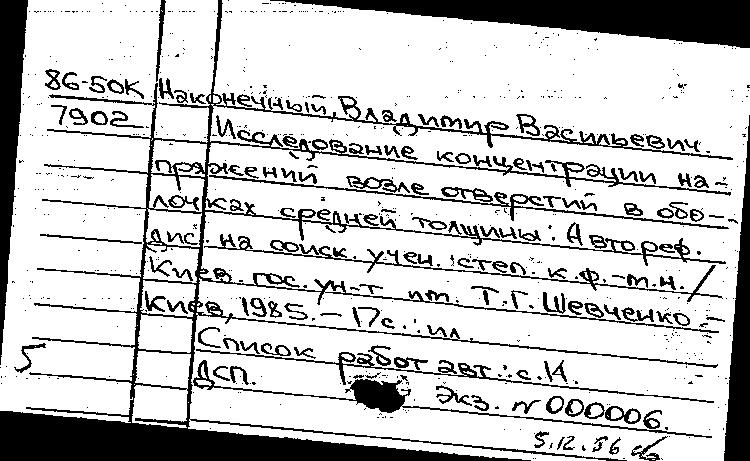 86-50К Наконечный, Владимир Васильевич.
7902 Исследование концентрации на-
пряжений возле отверстий в обо-
лочках средней толщины: Автореф.
дис. на соиск. учен. степ. к.ф.-м.н./
Киев. гос. ун-т им. Т.Г. Шевченко.-
Киев, 1985. - 17с.: ил.
Список работ авт.: с.
5 ДСП. Экз. №000006.
5.12.86